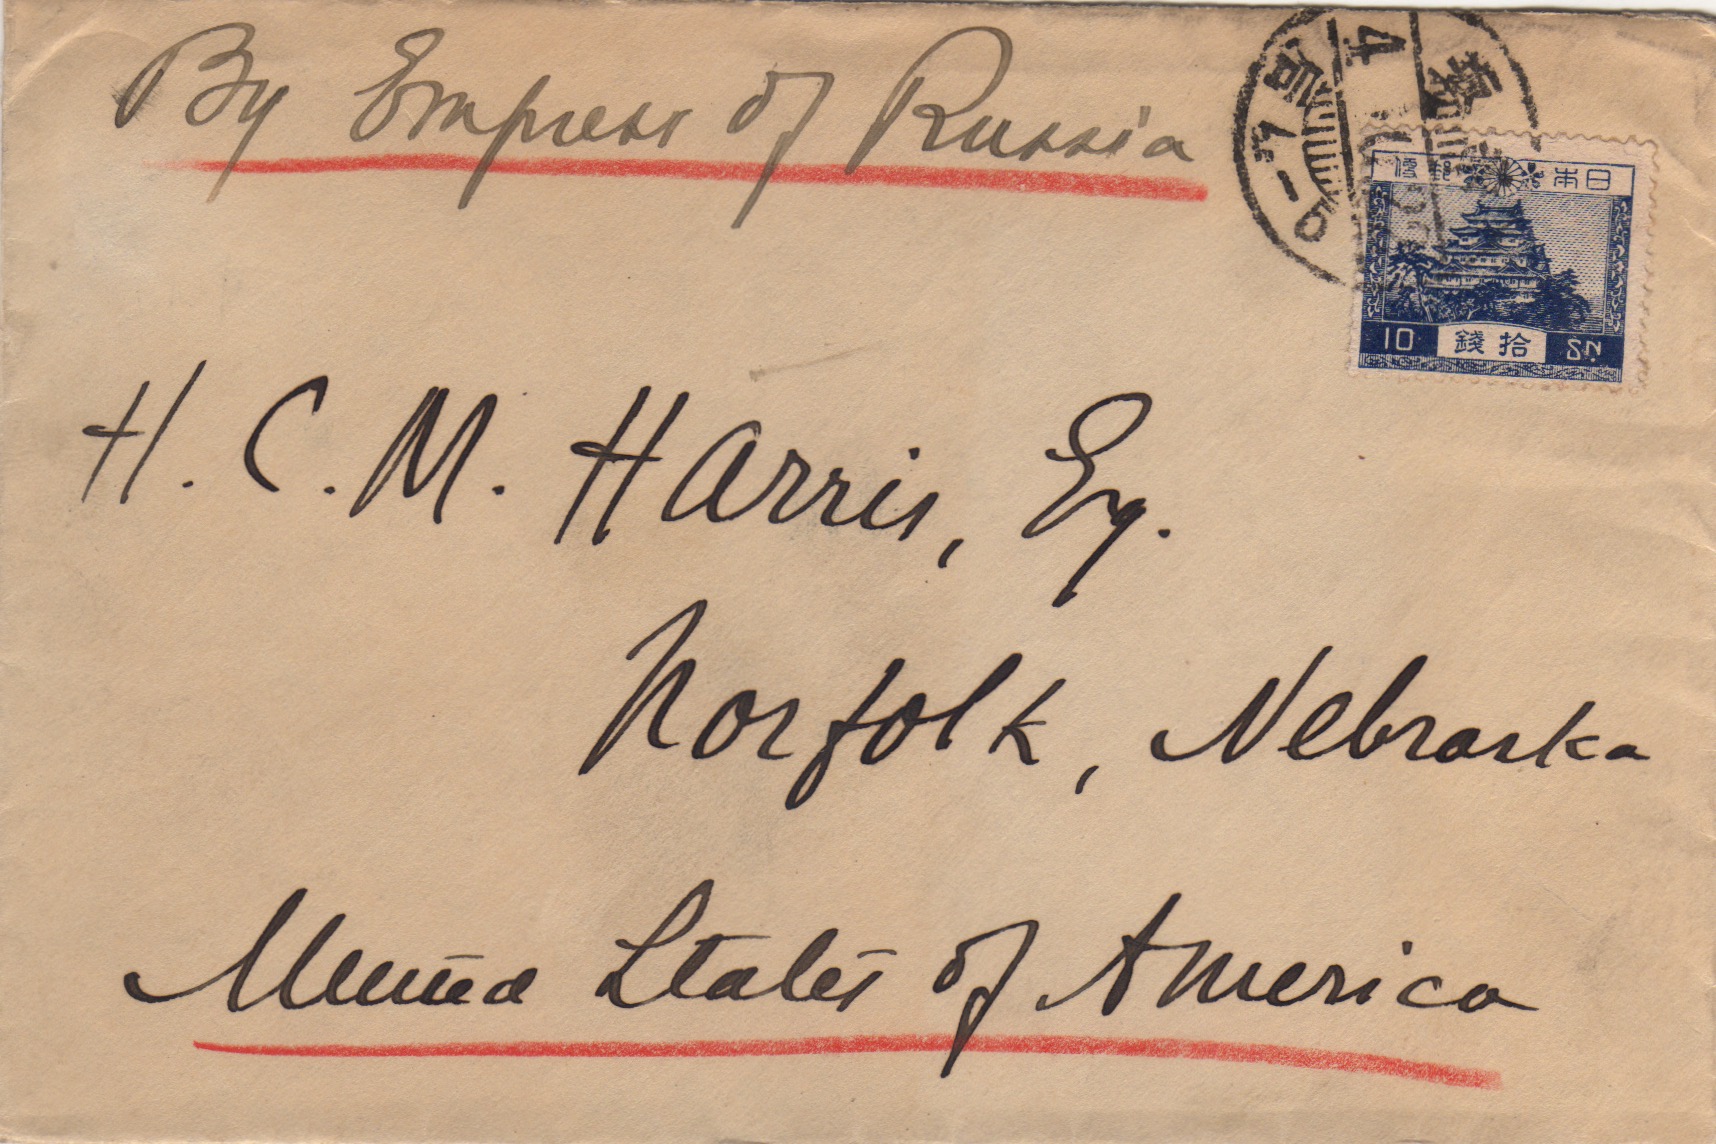 By Empress of Russia
日本 郵便
10 拾錢 SN
H. C. M. Harris, Esq.
Norfolk, Nebraska
United States of America